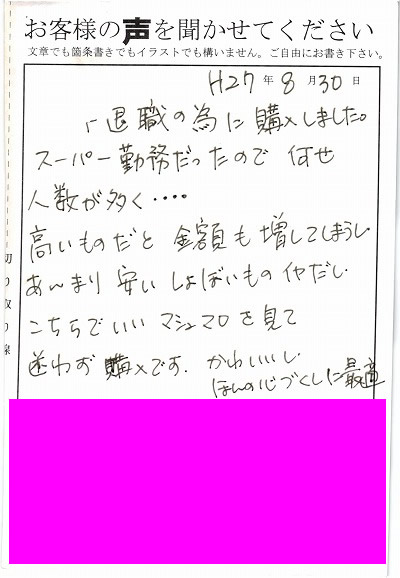 お客様の声を聞かせてください
文章でも箇条書きでもイラストでも構いません。ご自由にお書き下さい。
H27年8月30日
退職の為に購入しました。
スーパー勤務だったので何せ
人数が多く・・・・
高いものだと金額も増してしまうし
あんまり安いしょぼいものイヤだし
こちらでいいマシュマロを見て
迷わず購入です.かわいいし
ほんの心づくしに最適
切り取り線